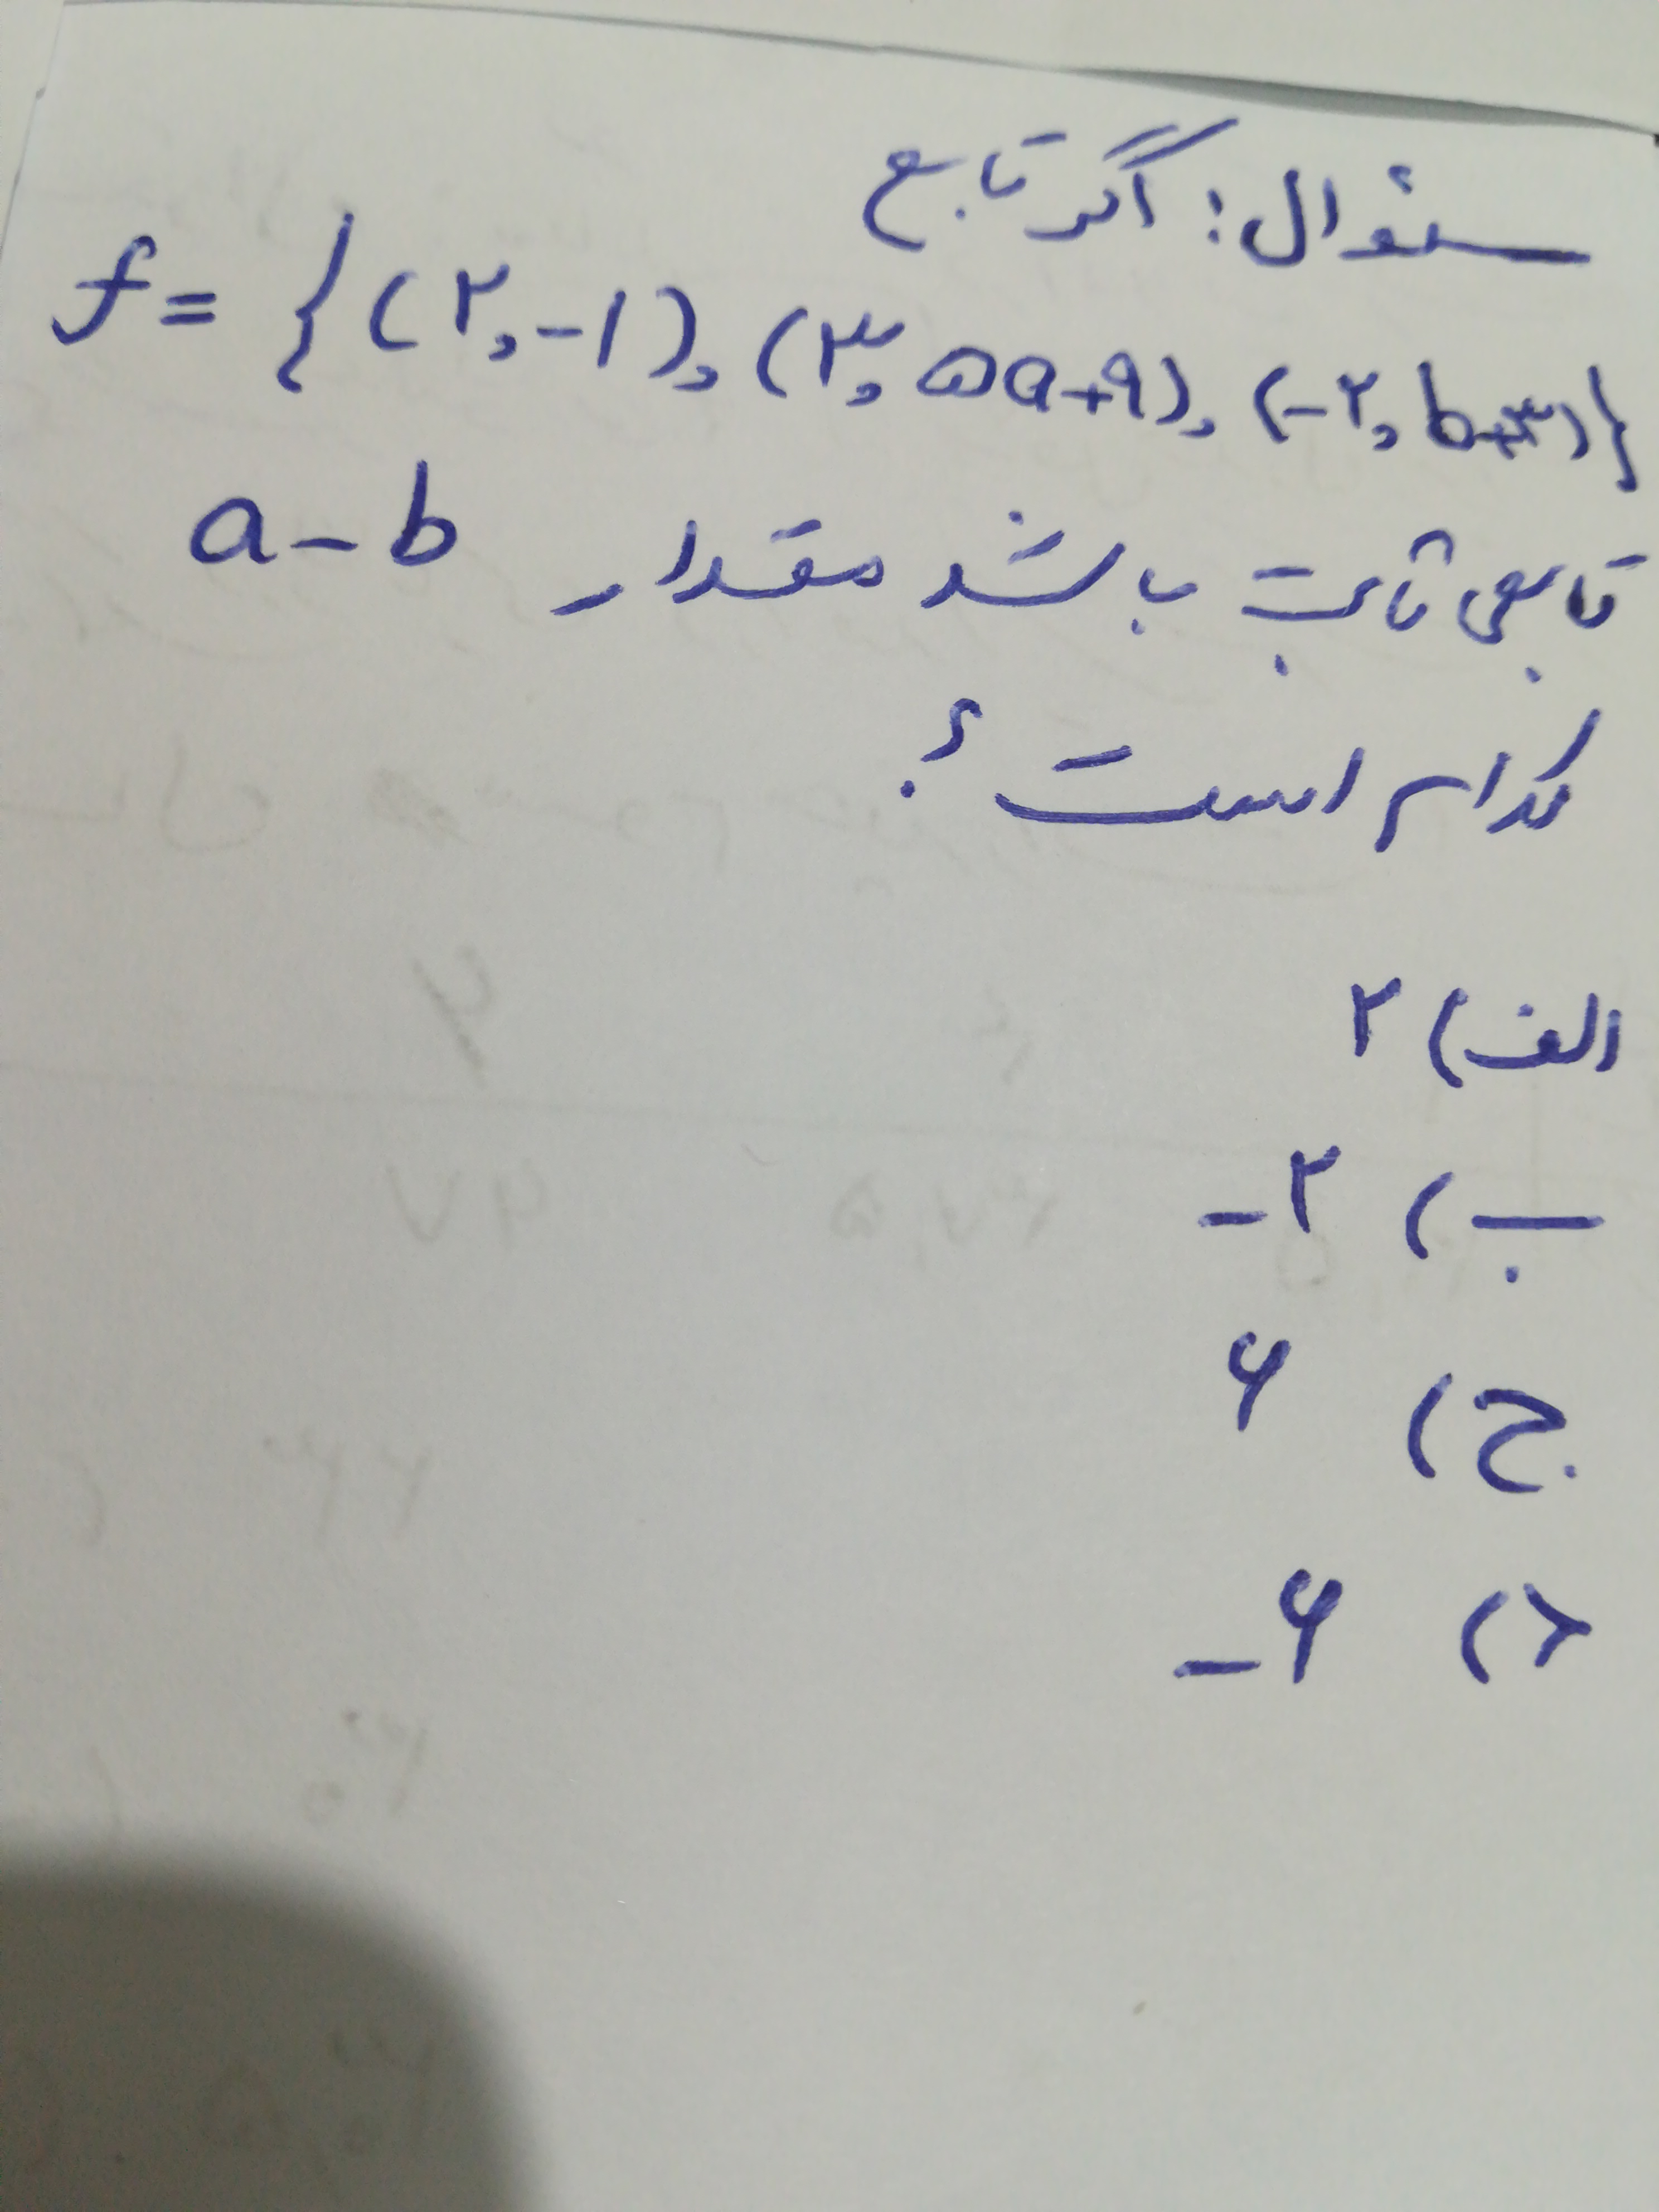 سئوال: اگر تابع
f = {(۲,-۱), (۳, ۵a+۹), (-۲, b+۳)}
تابعی ثابت باشد مقدار a-b
کدام است؟
الف) ۲
ب) -۲
ج) ۶
د) -۶